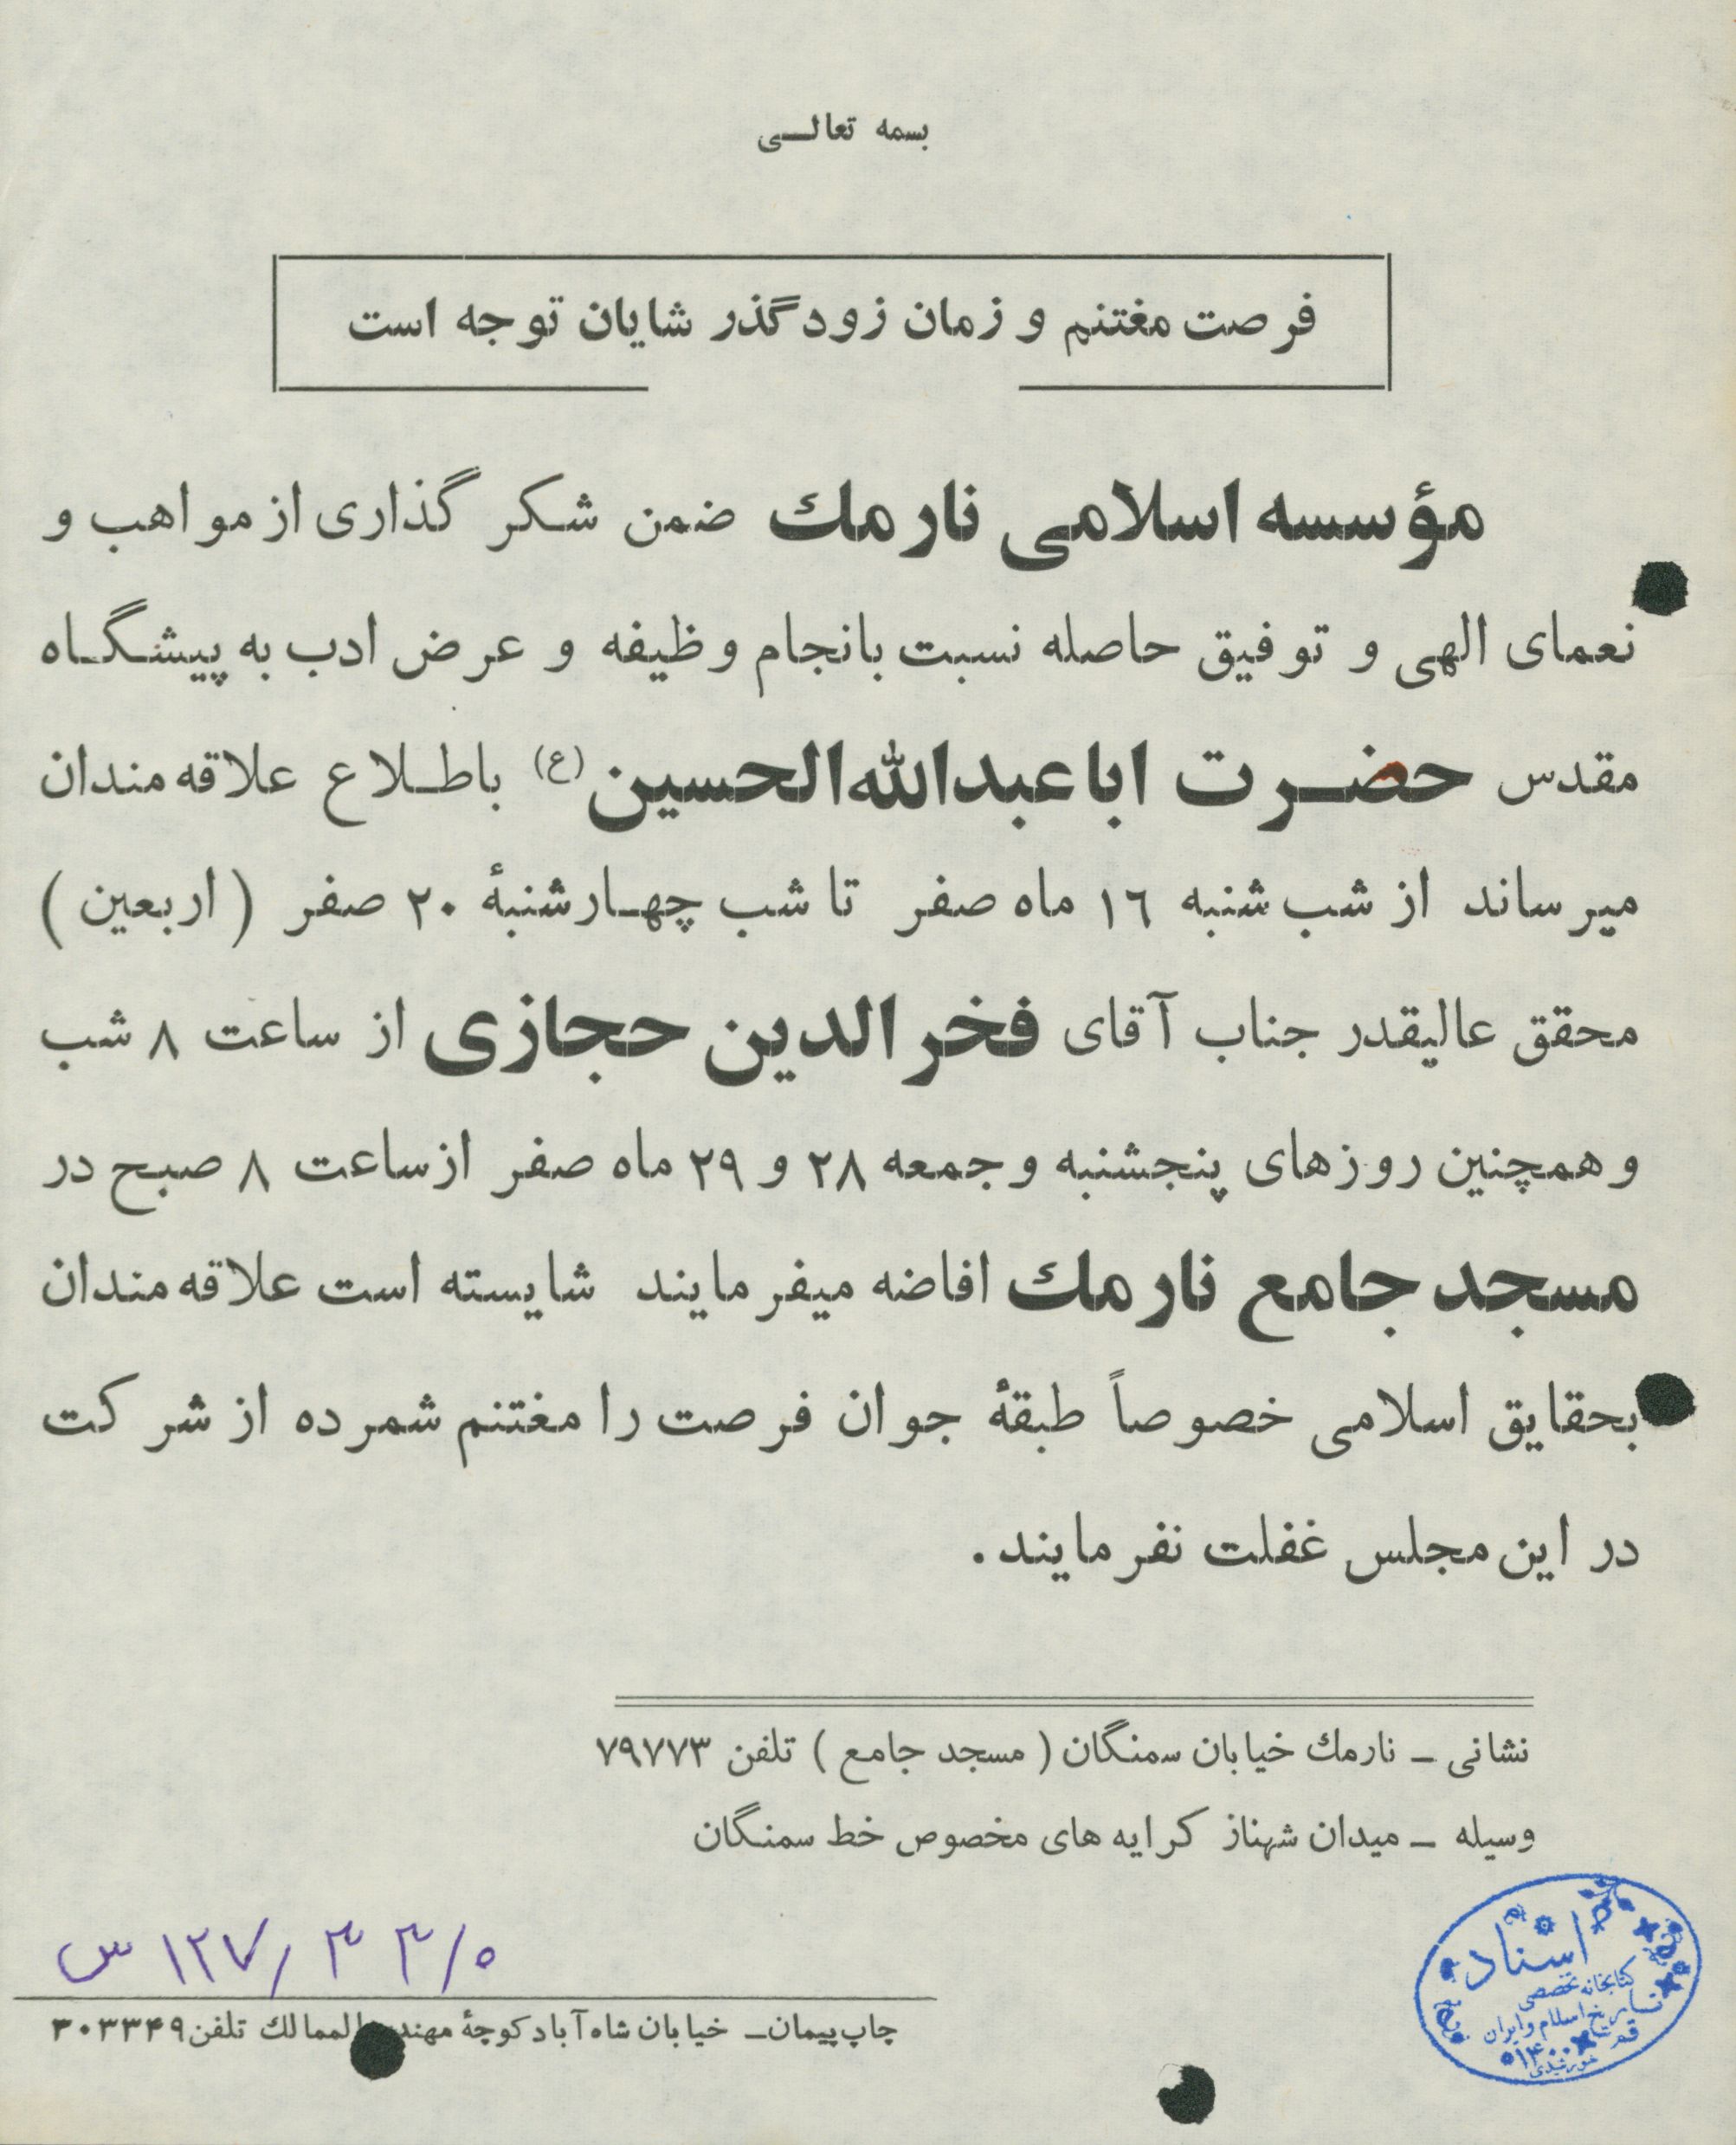 بسمه تعالی
فرصت مغتنم و زمان زودگذر شایان توجه است
مؤسسه اسلامی نارمك ضمن شکر گذاری از مواهب و
نعمای الهی و توفیق حاصله نسبت بانجام وظیفه و عرض ادب به پیشگاه
مقدس حضرت اباعبدالله‌الحسین (ع) باطلاع علاقه‌مندان
میرساند از شب شنبه ۱٦ ماه صفر تا شب چهارشنبهٔ ۲۰ صفر (اربعین)
محقق عالیقدر جناب آقای فخرالدین حجازی از ساعت ۸ شب
و همچنین روزهای پنجشنبه و جمعه ۲۸ و ۲۹ ماه صفر از ساعت ۸ صبح در
مسجد جامع نارمك افاضه میفرمایند شایسته است علاقه‌مندان
بحقایق اسلامی خصوصاً طبقهٔ جوان فرصت را مغتنم شمرده از شرکت
در این مجلس غفلت نفرمایند.
نشانی ـ نارمك خیابان سمنگان (مسجد جامع) تلفن ۷۹۷۷۳
وسیله ـ میدان شهناز کرایه های مخصوص خط سمنگان
اسناد
کتابخانه تخصصی
تاریخ اسلام و ایران
قم
۱۴۰۰ خورشیدی
۱۲۷/۳۳/۰ س
چاپ پیمان ـ خیابان شاه‌آباد کوچهٔ مهندس‌الممالك تلفن ۳۰۳۳۴۹